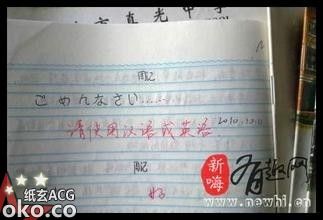 市真光中学
ごめんなさい.....
请使用汉语或英语
好
纸玄ACG
oko.co
新嗨
有趣网
www.newhi.cn